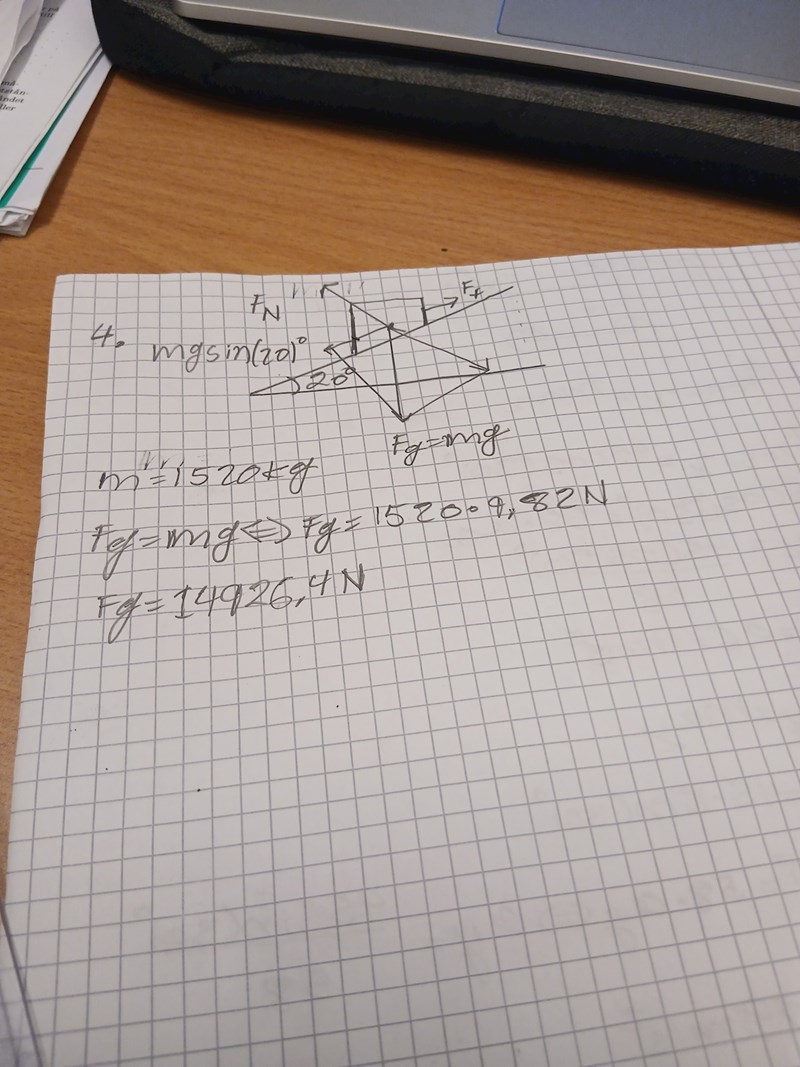 4.
F_N
F_f
mgsin(20)°
20°
Fg=mg
m=1520kg
Fg=mg⇔Fg=1520•9,82N
Fg=14926,4N